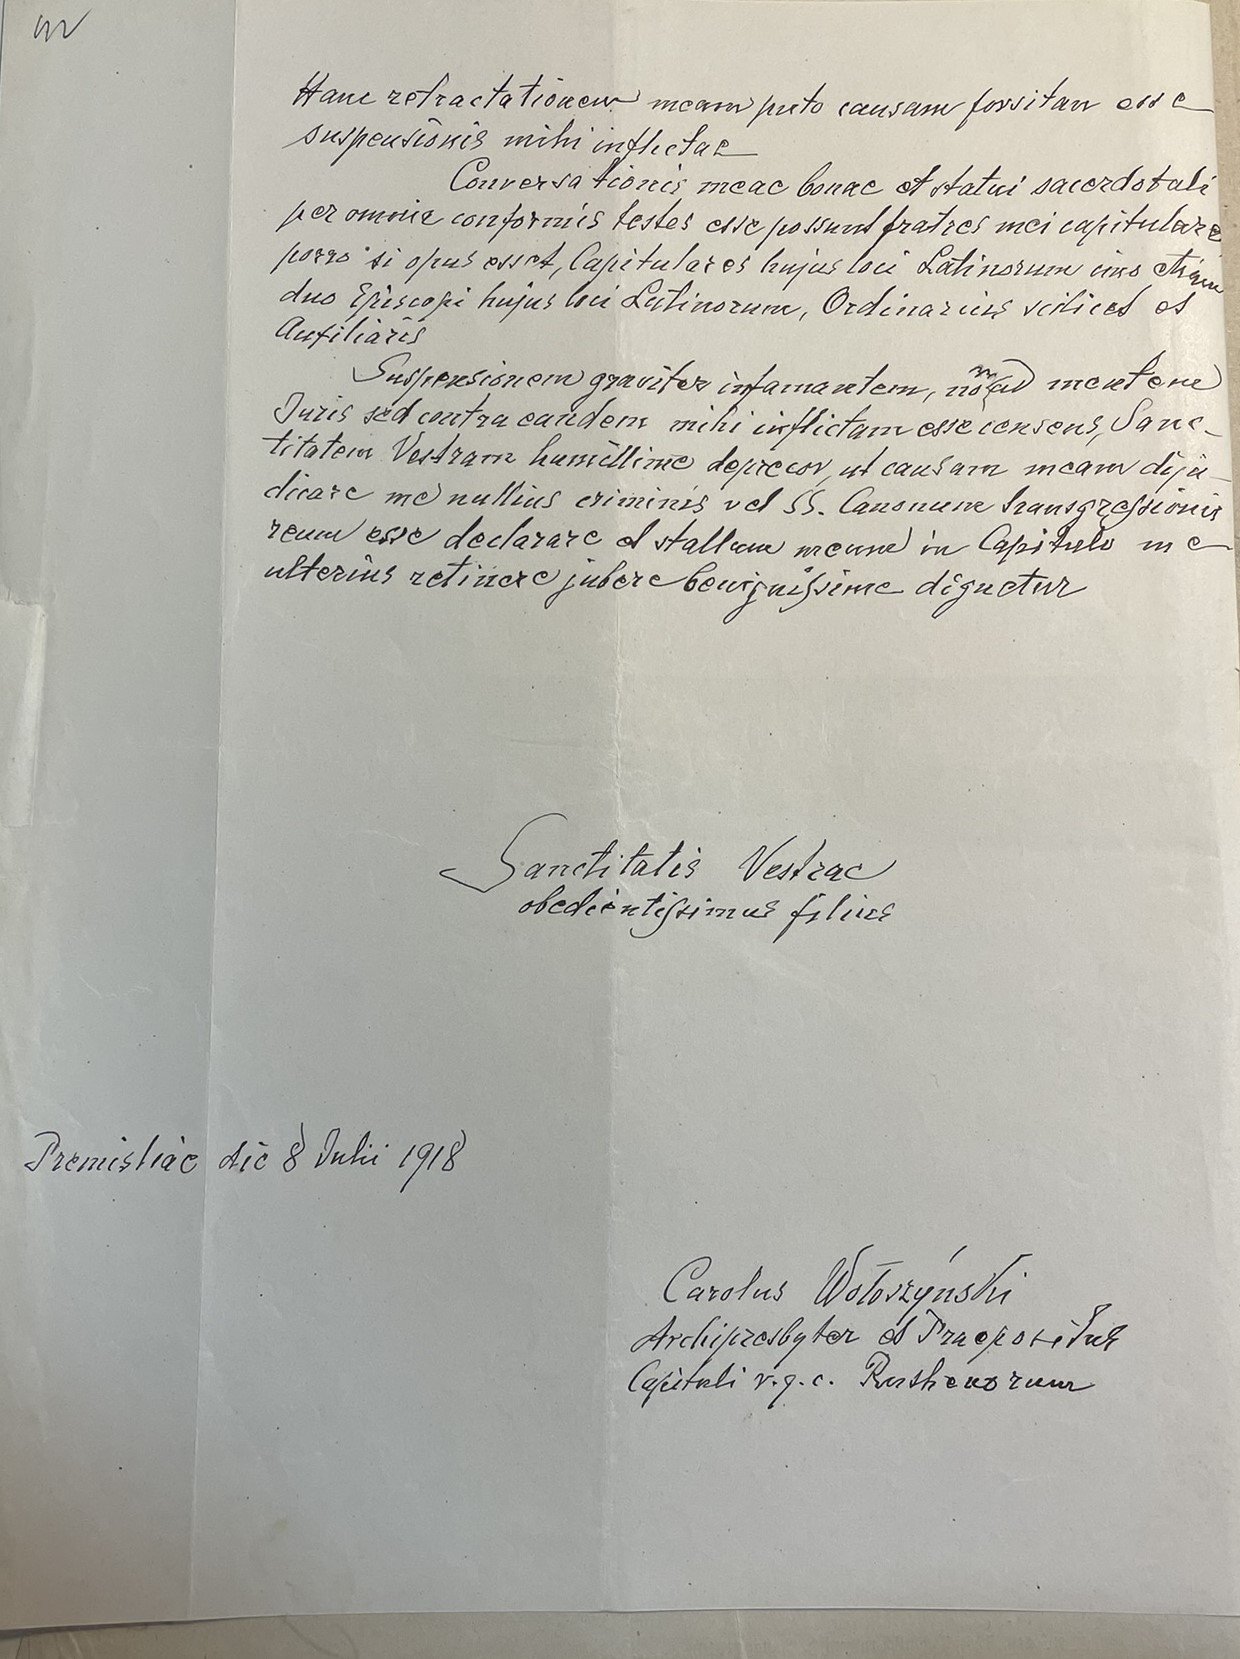 Hanc retractationem meam puto causam forsitan esse
suspensionis mihi inflictae
Conversationis meae bonae et statui sacerdotali
per omnia conformis testes esse possunt fratres mei capitulares
porro si opus esset, Capitulares hujus loci Latinorum imo etiam
duo Episcopi hujus loci Latinorum, Ordinarius scilicet et
Auxiliaris
Suspensionem graviter infamantem, non ad mentem
Juris sed contra eandem mihi inflictam esse censens, Sanc-
titatem Vestram humillime deprecor, ut causam meam diju-
dicare me nullius criminis vel SS. Canonum transgressionis
reum esse declarare et stallum meum in Capitulo me
ulterius retinere jubere benignissime dignetur
Sanctitatis Vestrae
obedientissimus filius
Premisliae die 8 Julii 1918
Carolus Wołoszyński
Archipresbyter et Praepositus
Capituli r. g. c. Ruthenorum